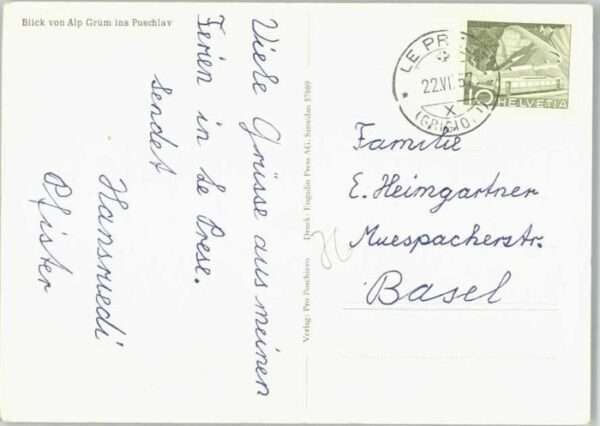 Blick von Alp Grüm ins Puschlav
Viele Grüsse aus meinen
Ferien in Le Prese.
sendet
Hansruedi
Pfister
Verlag: Pro Poschiavo Druck: Engadin Press AG, Samedan
LE PR
22.VI.5
X
(GRIGIO
10 HELVETIA
Familie
E. Heimgartner
Muespacherstr.
Basel